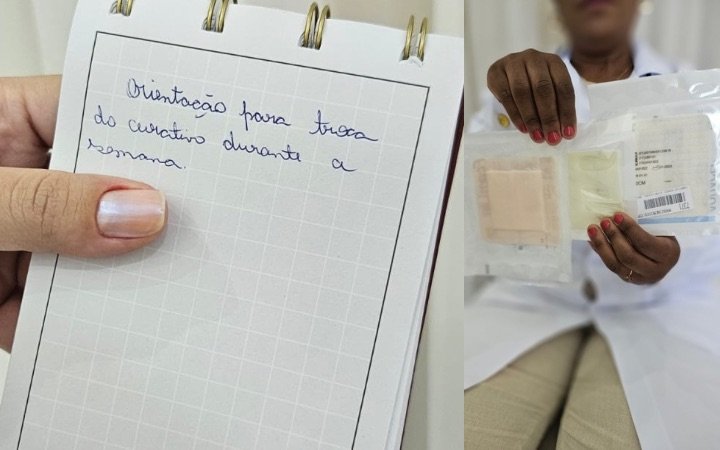 Orientação para troca
do curativo durante a
semana.